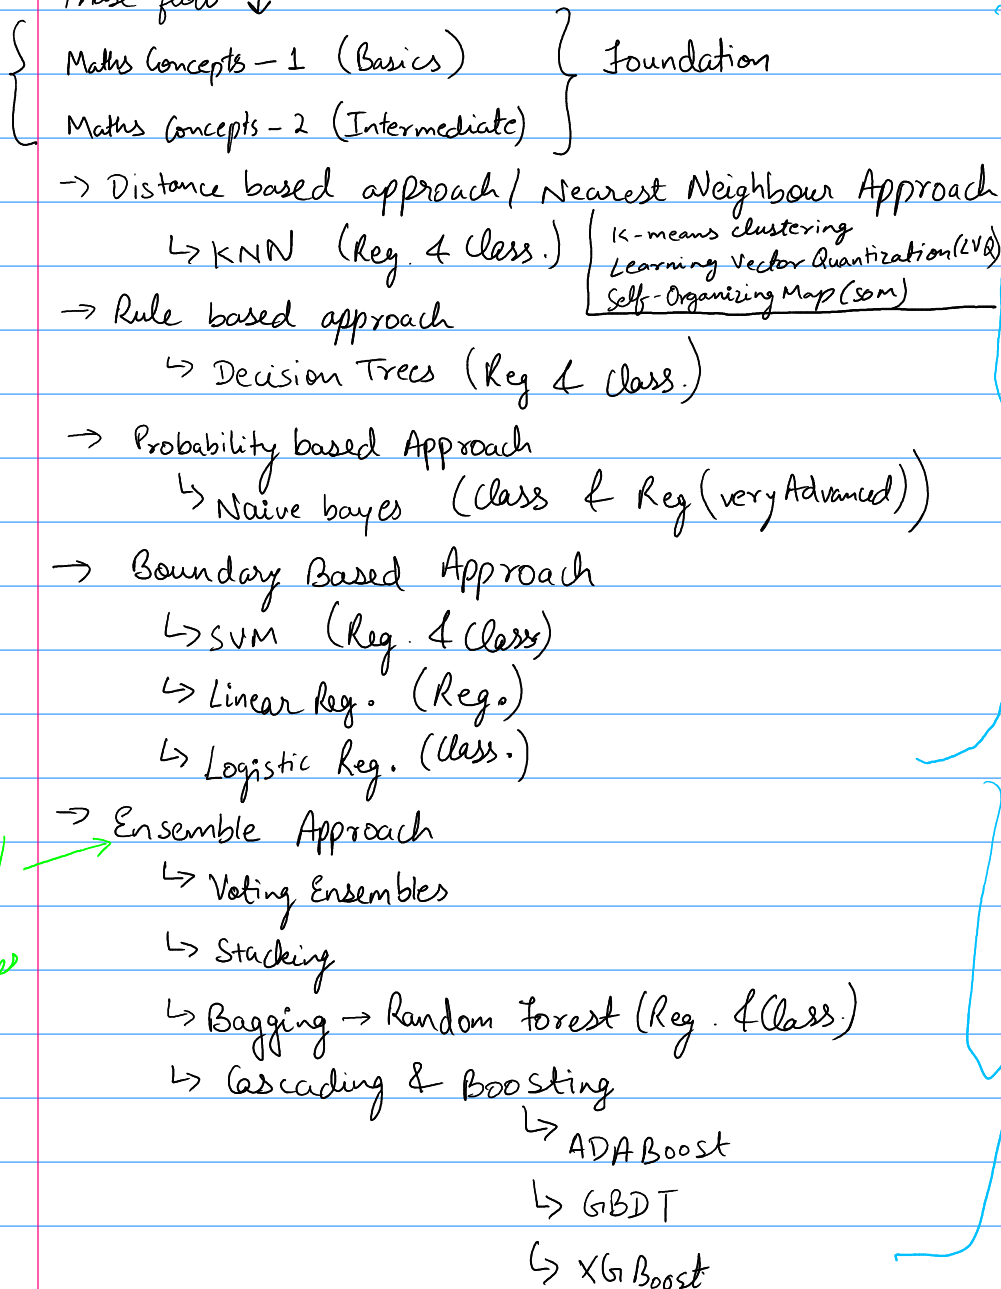 flow ↓
Maths Concepts - 1 (Basics)
Foundation
Maths Concepts - 2 (Intermediate)
→ Distance based approach / Nearest Neighbour Approach
↳ KNN (Reg. & Class.)
K-means clustering
Learning Vector Quantization (LVQ)
Self-Organizing Map (SOM)
→ Rule based approach
↳ Decision Trees (Reg & Class.)
→ Probability based Approach
↳ Naive bayes (Class & Reg (very Advanced))
→ Boundary Based Approach
↳ SVM (Reg. & Class)
↳ Linear Reg. (Reg.)
↳ Logistic Reg. (Class.)
→ Ensemble Approach
↳ Voting Ensembles
↳ Stacking
↳ Bagging → Random Forest (Reg. & Class.)
↳ Cascading & Boosting
↳ ADABoost
↳ GBDT
↳ XGBoost